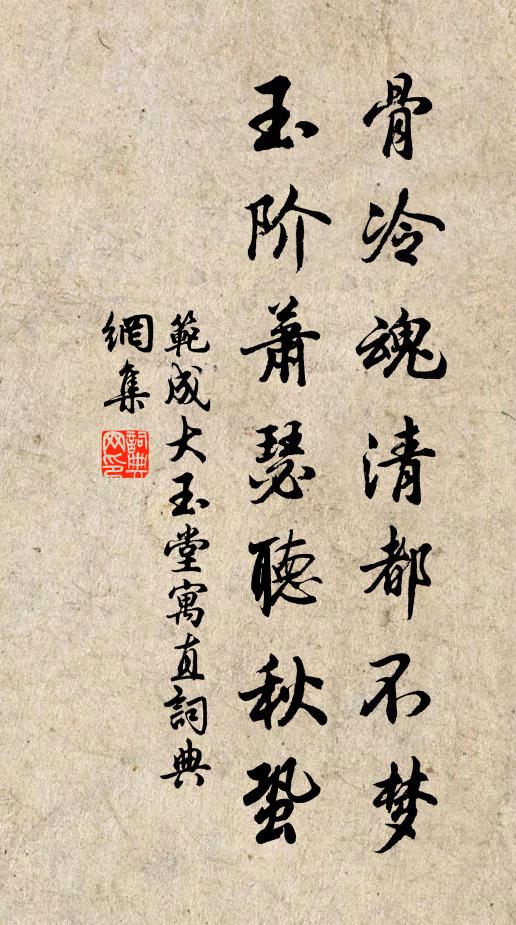 骨冷魂清都不梦
玉阶萧瑟聽秋蛩
範成大玉堂寓直詞典
網集
詞典网印